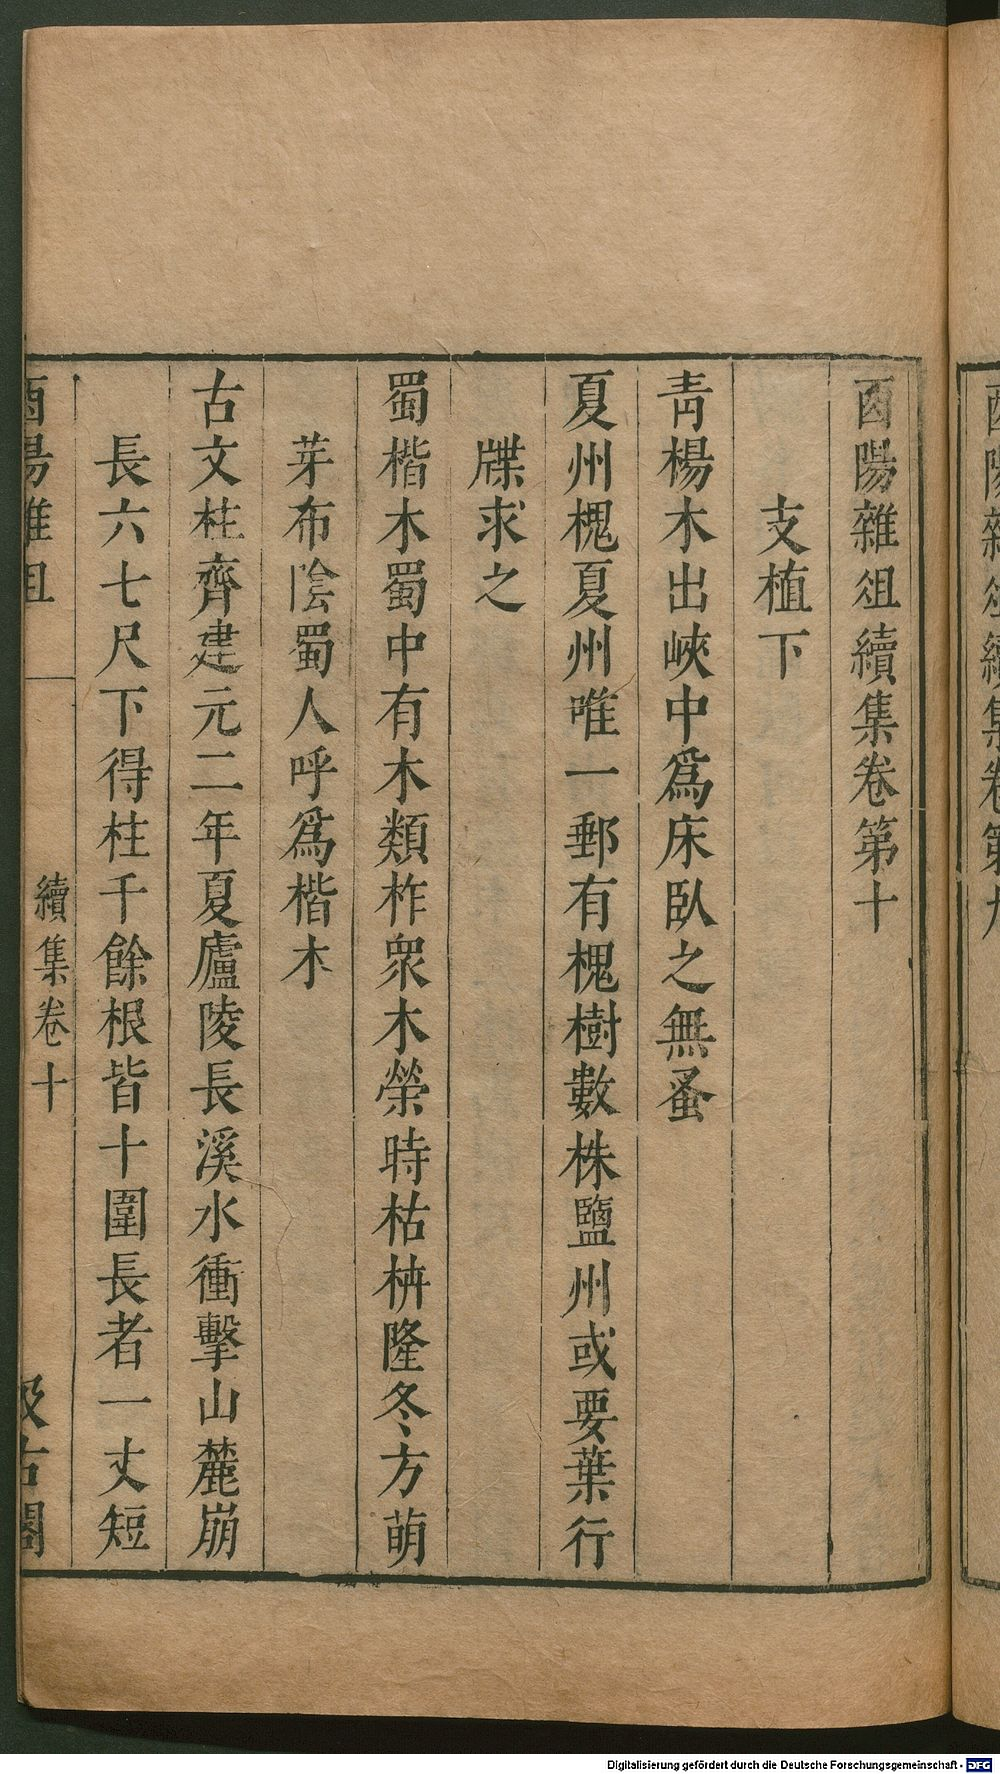 酉陽雜俎續集卷第十
支植下
青楊木出峽中爲床臥之無蚤
夏州槐夏州唯一郵有槐樹數株鹽州或要葉行
牒求之
蜀楷木蜀中有木類柞衆木榮時枯枿隆冬方萌
芽布陰蜀人呼爲楷木
古文柱齊建元二年夏廬陵長溪水衝擊山麓崩
長六七尺下得柱千餘根皆十圍長者一丈短
酉陽雜俎
續集卷十
汲古閣
酉陽雜俎續集卷第九
Digitalisierung gefördert durch die Deutsche Forschungsgemeinschaft - DFG